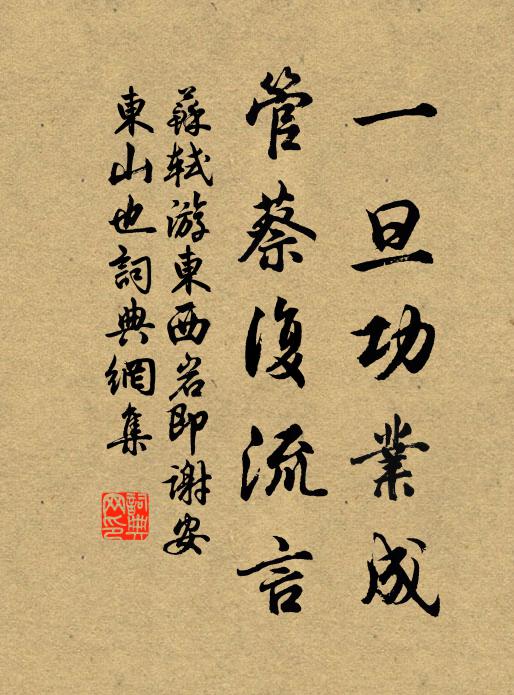 一旦功業成
管蔡復流言
蘇軾游東西岩即謝安
東山也詞典網集
詞典
网印